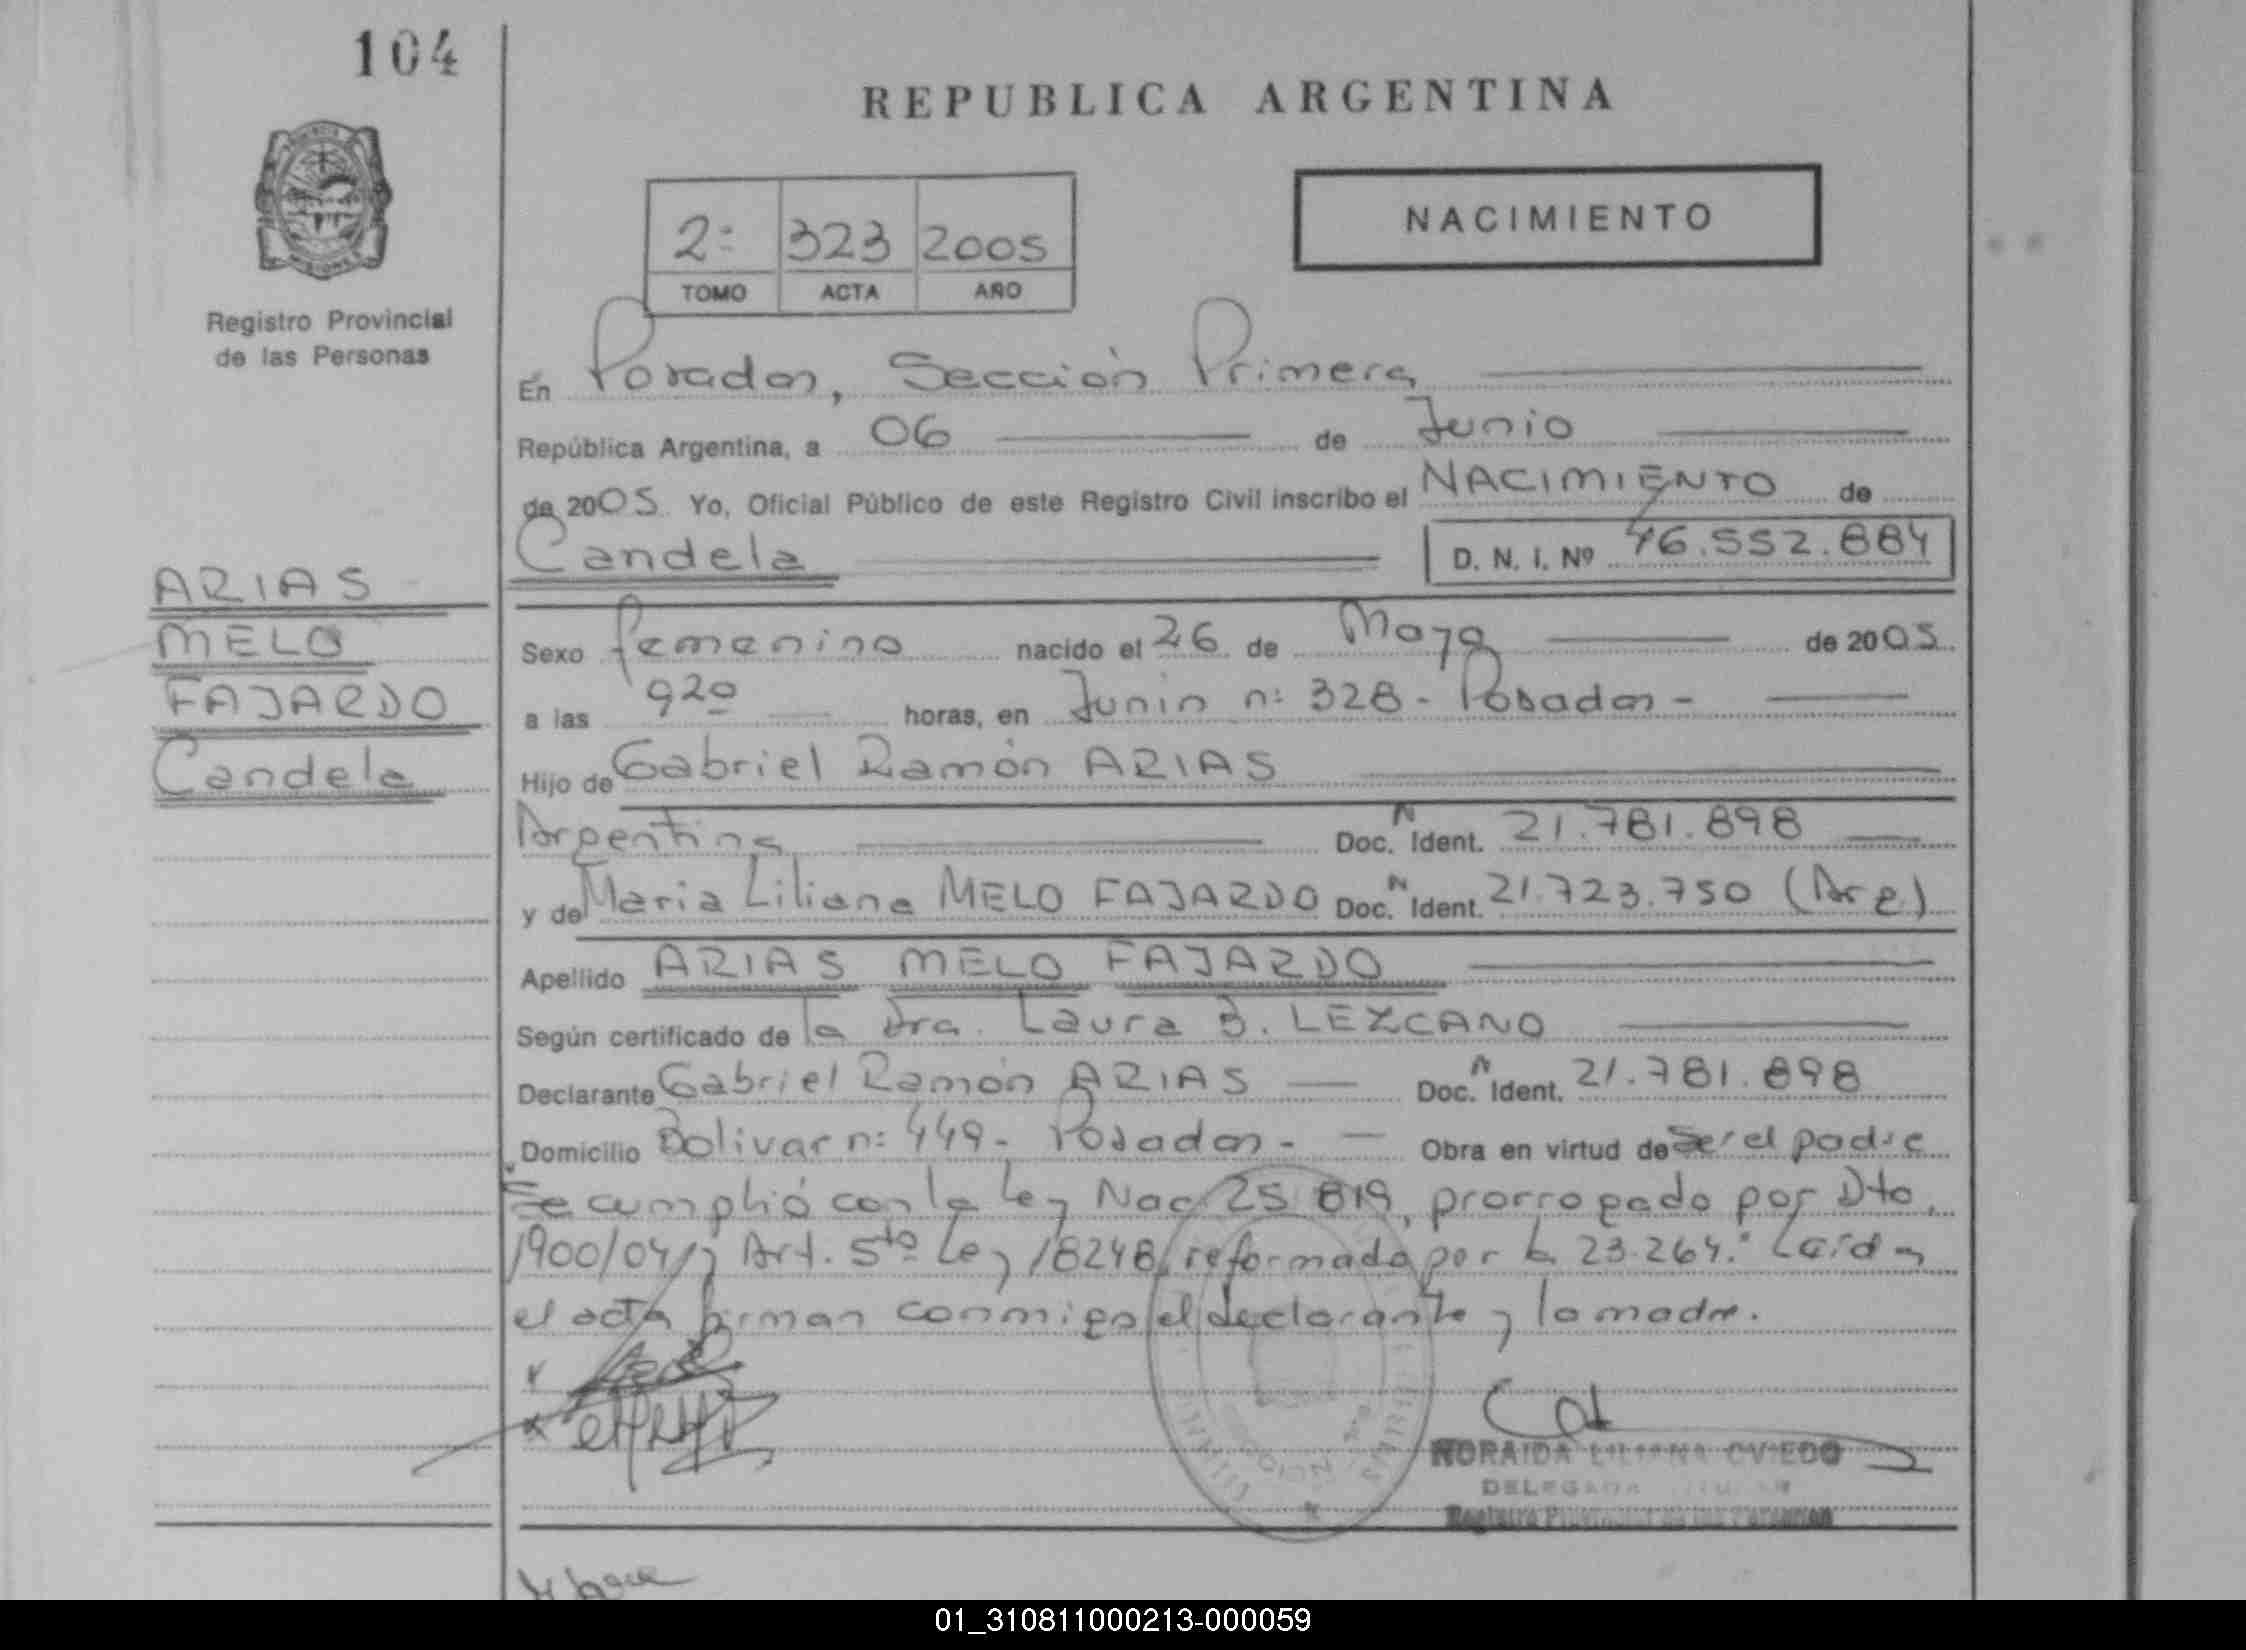 104
REPUBLICA ARGENTINA
NACIMIENTO
2º 323 2005
TOMO ACTA AÑO
Registro Provincial
de las Personas
En Posadas, Sección Primera
República Argentina, a 06 de Junio
de 2005. Yo, Oficial Público de este Registro Civil inscribo el NACIMIENTO de
Candela D. N. I. Nº 46.552.884
ARIAS
MELO
FAJARDO
Candela
Sexo femenino nacido el 26 de Mayo de 2005.
a las 920 horas, en Junin nº 328 - Posadas -
Hijo de Gabriel Ramón ARIAS
Argentina Doc. N Ident. 21.781.898
y de Maria Liliana MELO FAJARDO Doc. N Ident. 21.723.750 (Arg.)
Apellido ARIAS MELO FAJARDO
Según certificado de la Dra. Laura B. LEZCANO
Declarante Gabriel Ramón ARIAS Doc. N Ident. 21.781.898
Domicilio Bolivar nº 449 - Posadas - Obra en virtud de Ser el padre
Se cumplió con la Ley Nac 25 819, prorrogado por Dto.
1900/04 y Art. 5to Ley 18248, reformado por la 23.264. Leída
el acta firman conmigo el declarante y la madre.
NORAIDA LILIANA OVIEDO
DELEGADA TITULAR
Registro Provincial de las Personas
01_310811000213-000059